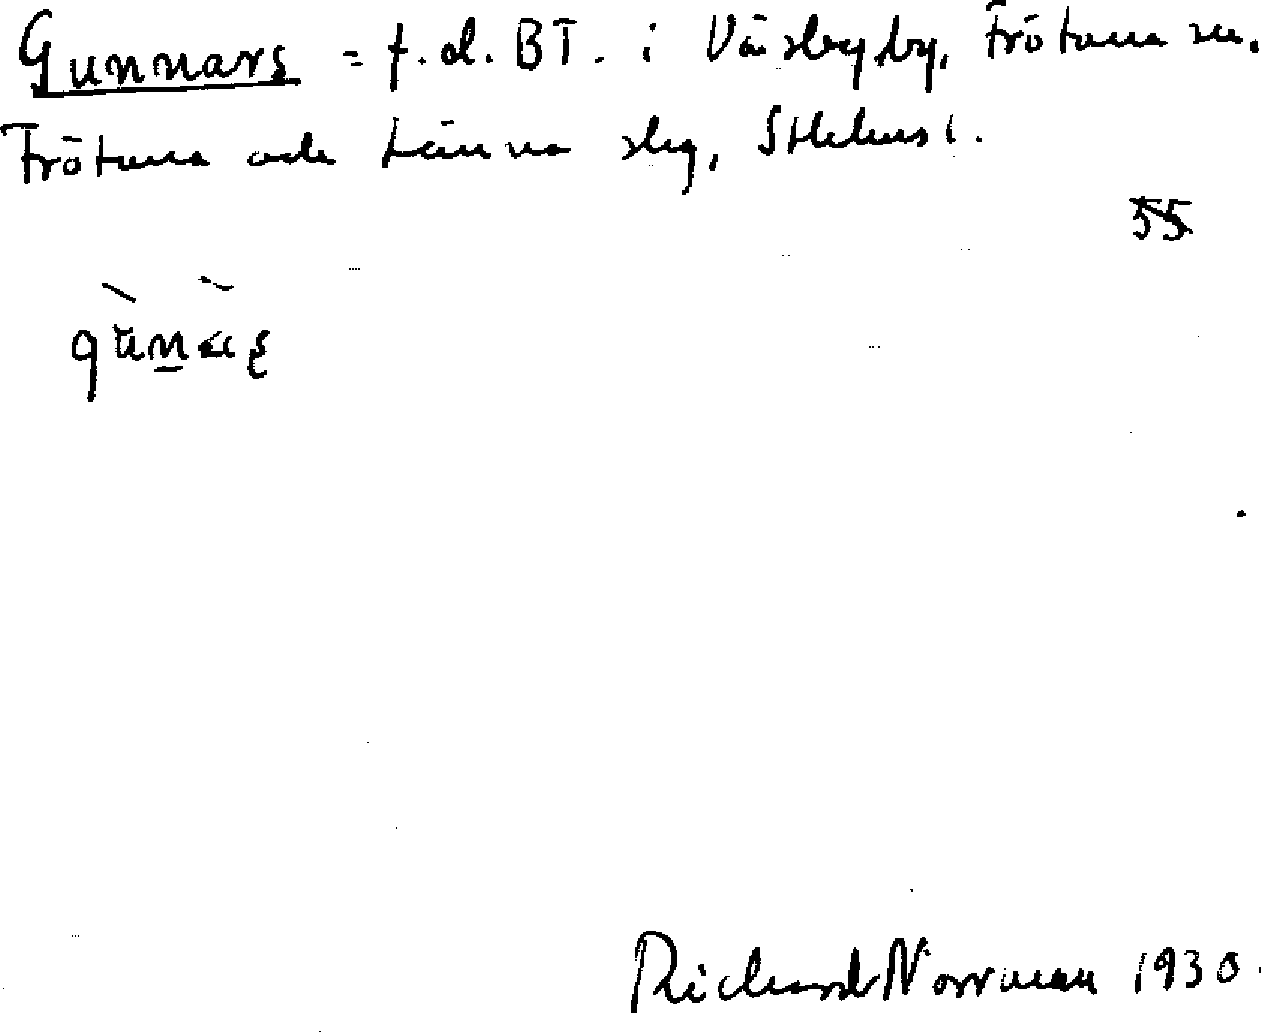 Gunnars = f.d. BT. i Väsby by, Frötuna sn.
Frötuna och Länna slag, Sthlms l.
55
Richard Norrman 1930.